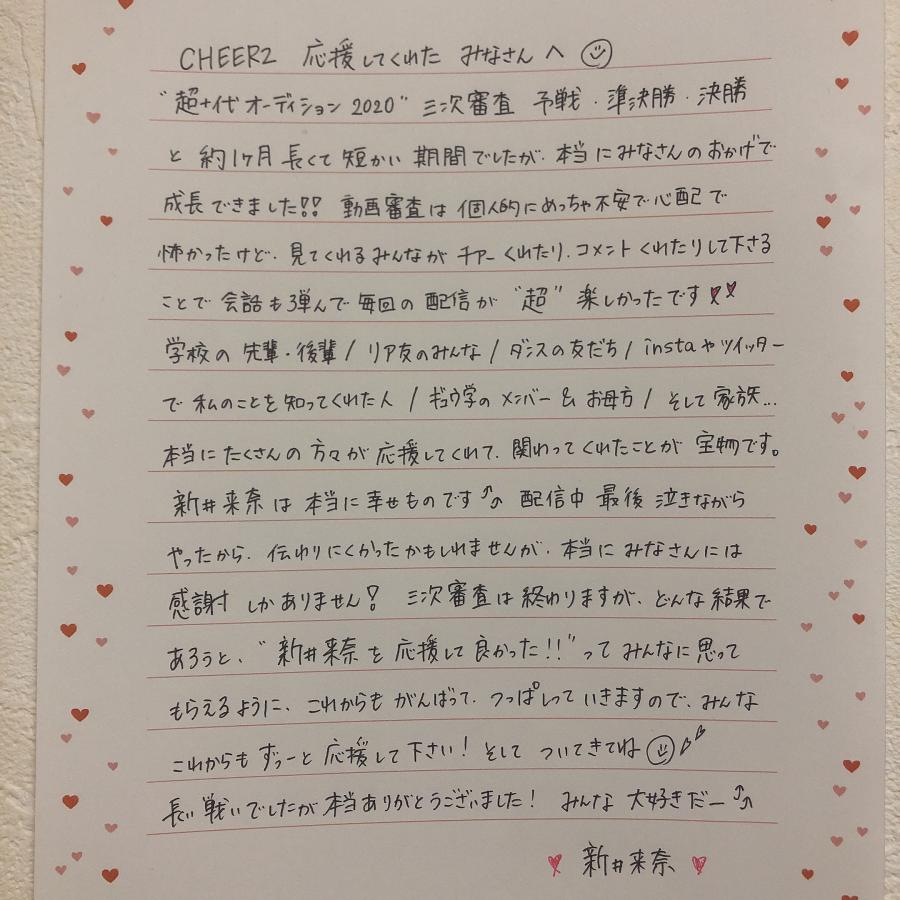 CHEERZ 応援してくれた みなさんへ
"超十代オーディション2020" 三次審査 予戦・準決勝・決勝
と 約1ヶ月 長くて 短かい 期間でしたが、本当にみなさんのおかげで
成長できました!! 動画審査は 個人的にめっちゃ不安で心配で
怖かったけど、見てくれるみんなが チアーくれたり、コメントくれたりして下さる
ことで 会話も弾んで 毎回の 配信が "超" 楽しかったです
学校の 先輩・後輩 / リア友のみんな / ダンスの友だち / instaやツイッター
で 私のことを 知ってくれた人 / ギュウ学の メンバー & お母方 / そして 家族...
本当に たくさんの 方々が 応援してくれて、関わってくれたことが 宝物です。
新井来奈は 本当に 幸せものです 配信中 最後 泣きながら
やったから、伝わりにくかったかもしれませんが、本当に みなさんには
感謝 しかありません! 三次審査は 終わりますが、どんな結果で
あろうと、"新井来奈を 応援して 良かった!!" って みんなに思って
もらえるように、これからも がんばって、つっぱしって いきますので、みんな
これからも ずぅーと 応援して下さい! そして ついてきてね
長い戦いでしたが 本当ありがとうございました! みんな 大好きだー
新井来奈